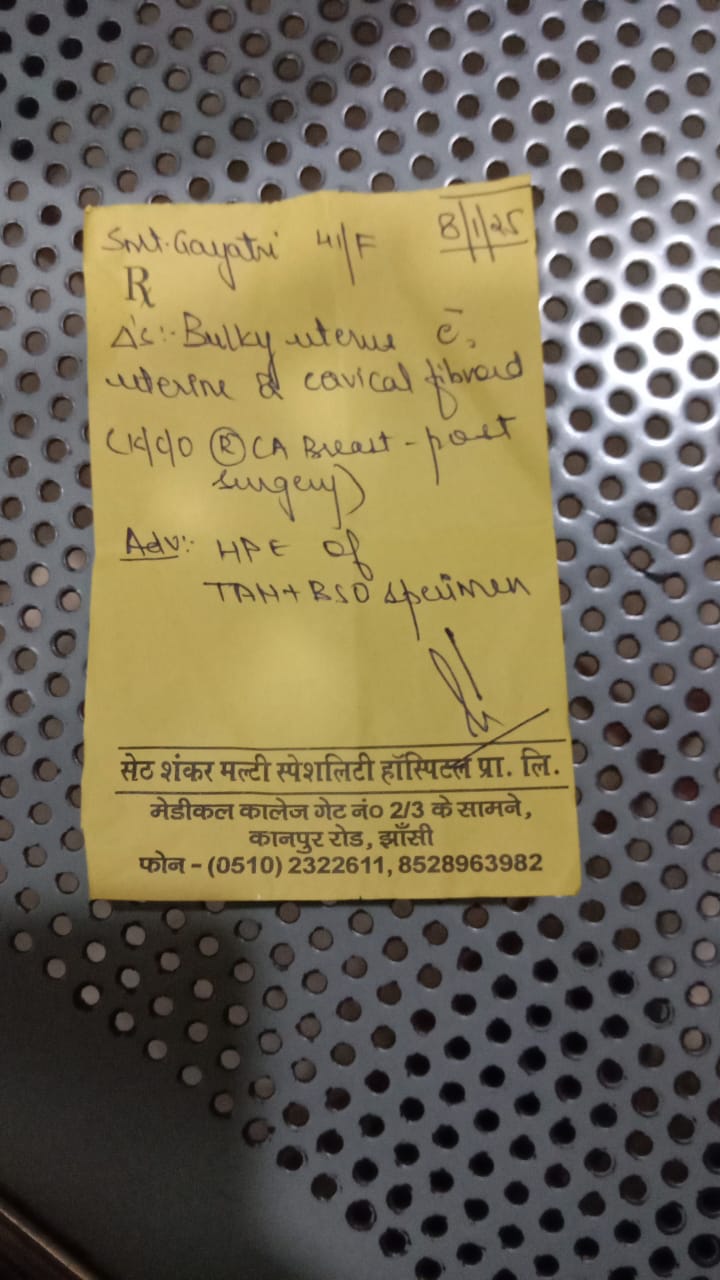 Smt. Gayatri 41/F 8/1/25
Rx
Δ's:- Bulky uterus c̄
uterine & cervical fibroid
(K/C/O Ⓡ CA Breast - post
surgery)
Adv:- HPE of
TAH + BSO specimen
सेठ शंकर मल्टी स्पेशलिटी हॉस्पिटल प्रा. लि.
मेडीकल कालेज गेट नं० 2/3 के सामने,
कानपुर रोड, झाँसी
फोन - (0510) 2322611, 8528963982